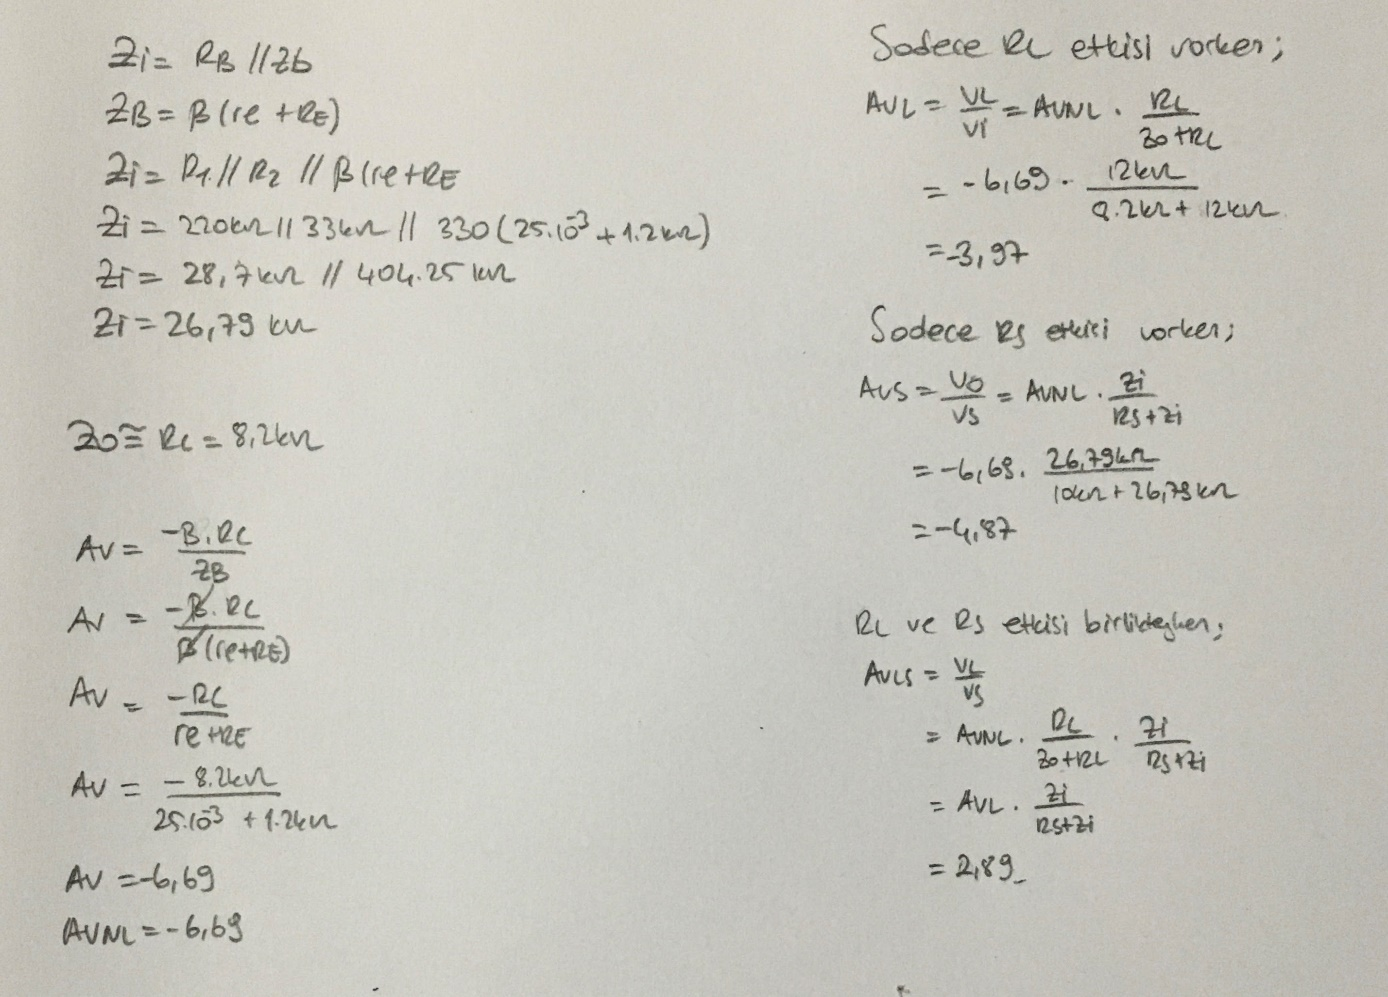 Zi = RB // Zb
ZB = β (re + RE)
Zi = R1 // R2 // β (re + RE
Zi = 220kΩ // 33kΩ // 330 (25.10⁻³ + 1.2kΩ)
Zi = 28,7kΩ // 404.25 kΩ
Zi = 26,79 kΩ
Zo ≅ Rc = 8,2kΩ
AV = -β.RC / ZB
AV = -β.RC / β(re+RE)
AV = -RC / re+RE
AV = -8.2kΩ / 25.10⁻³ + 1.2kΩ
AV = -6,69
AVNL = -6,69
Sadece RL etkisi varken;
AVL = VL / Vi = AVNL . RL / Zo+RL
= -6,69 . 12kΩ / 8.2kΩ + 12kΩ
= -3,97
Sadece RS etkisi varken;
AVS = VO / VS = AVNL . Zi / RS+Zi
= -6,69 . 26,79kΩ / 10kΩ + 26,79kΩ
= -4,87
RL ve RS etkisi birlikteyken;
AVLS = VL / VS
= AVNL . RL / Zo+RL . Zi / RS+Zi
= AVL . Zi / RS+Zi
= 2,89